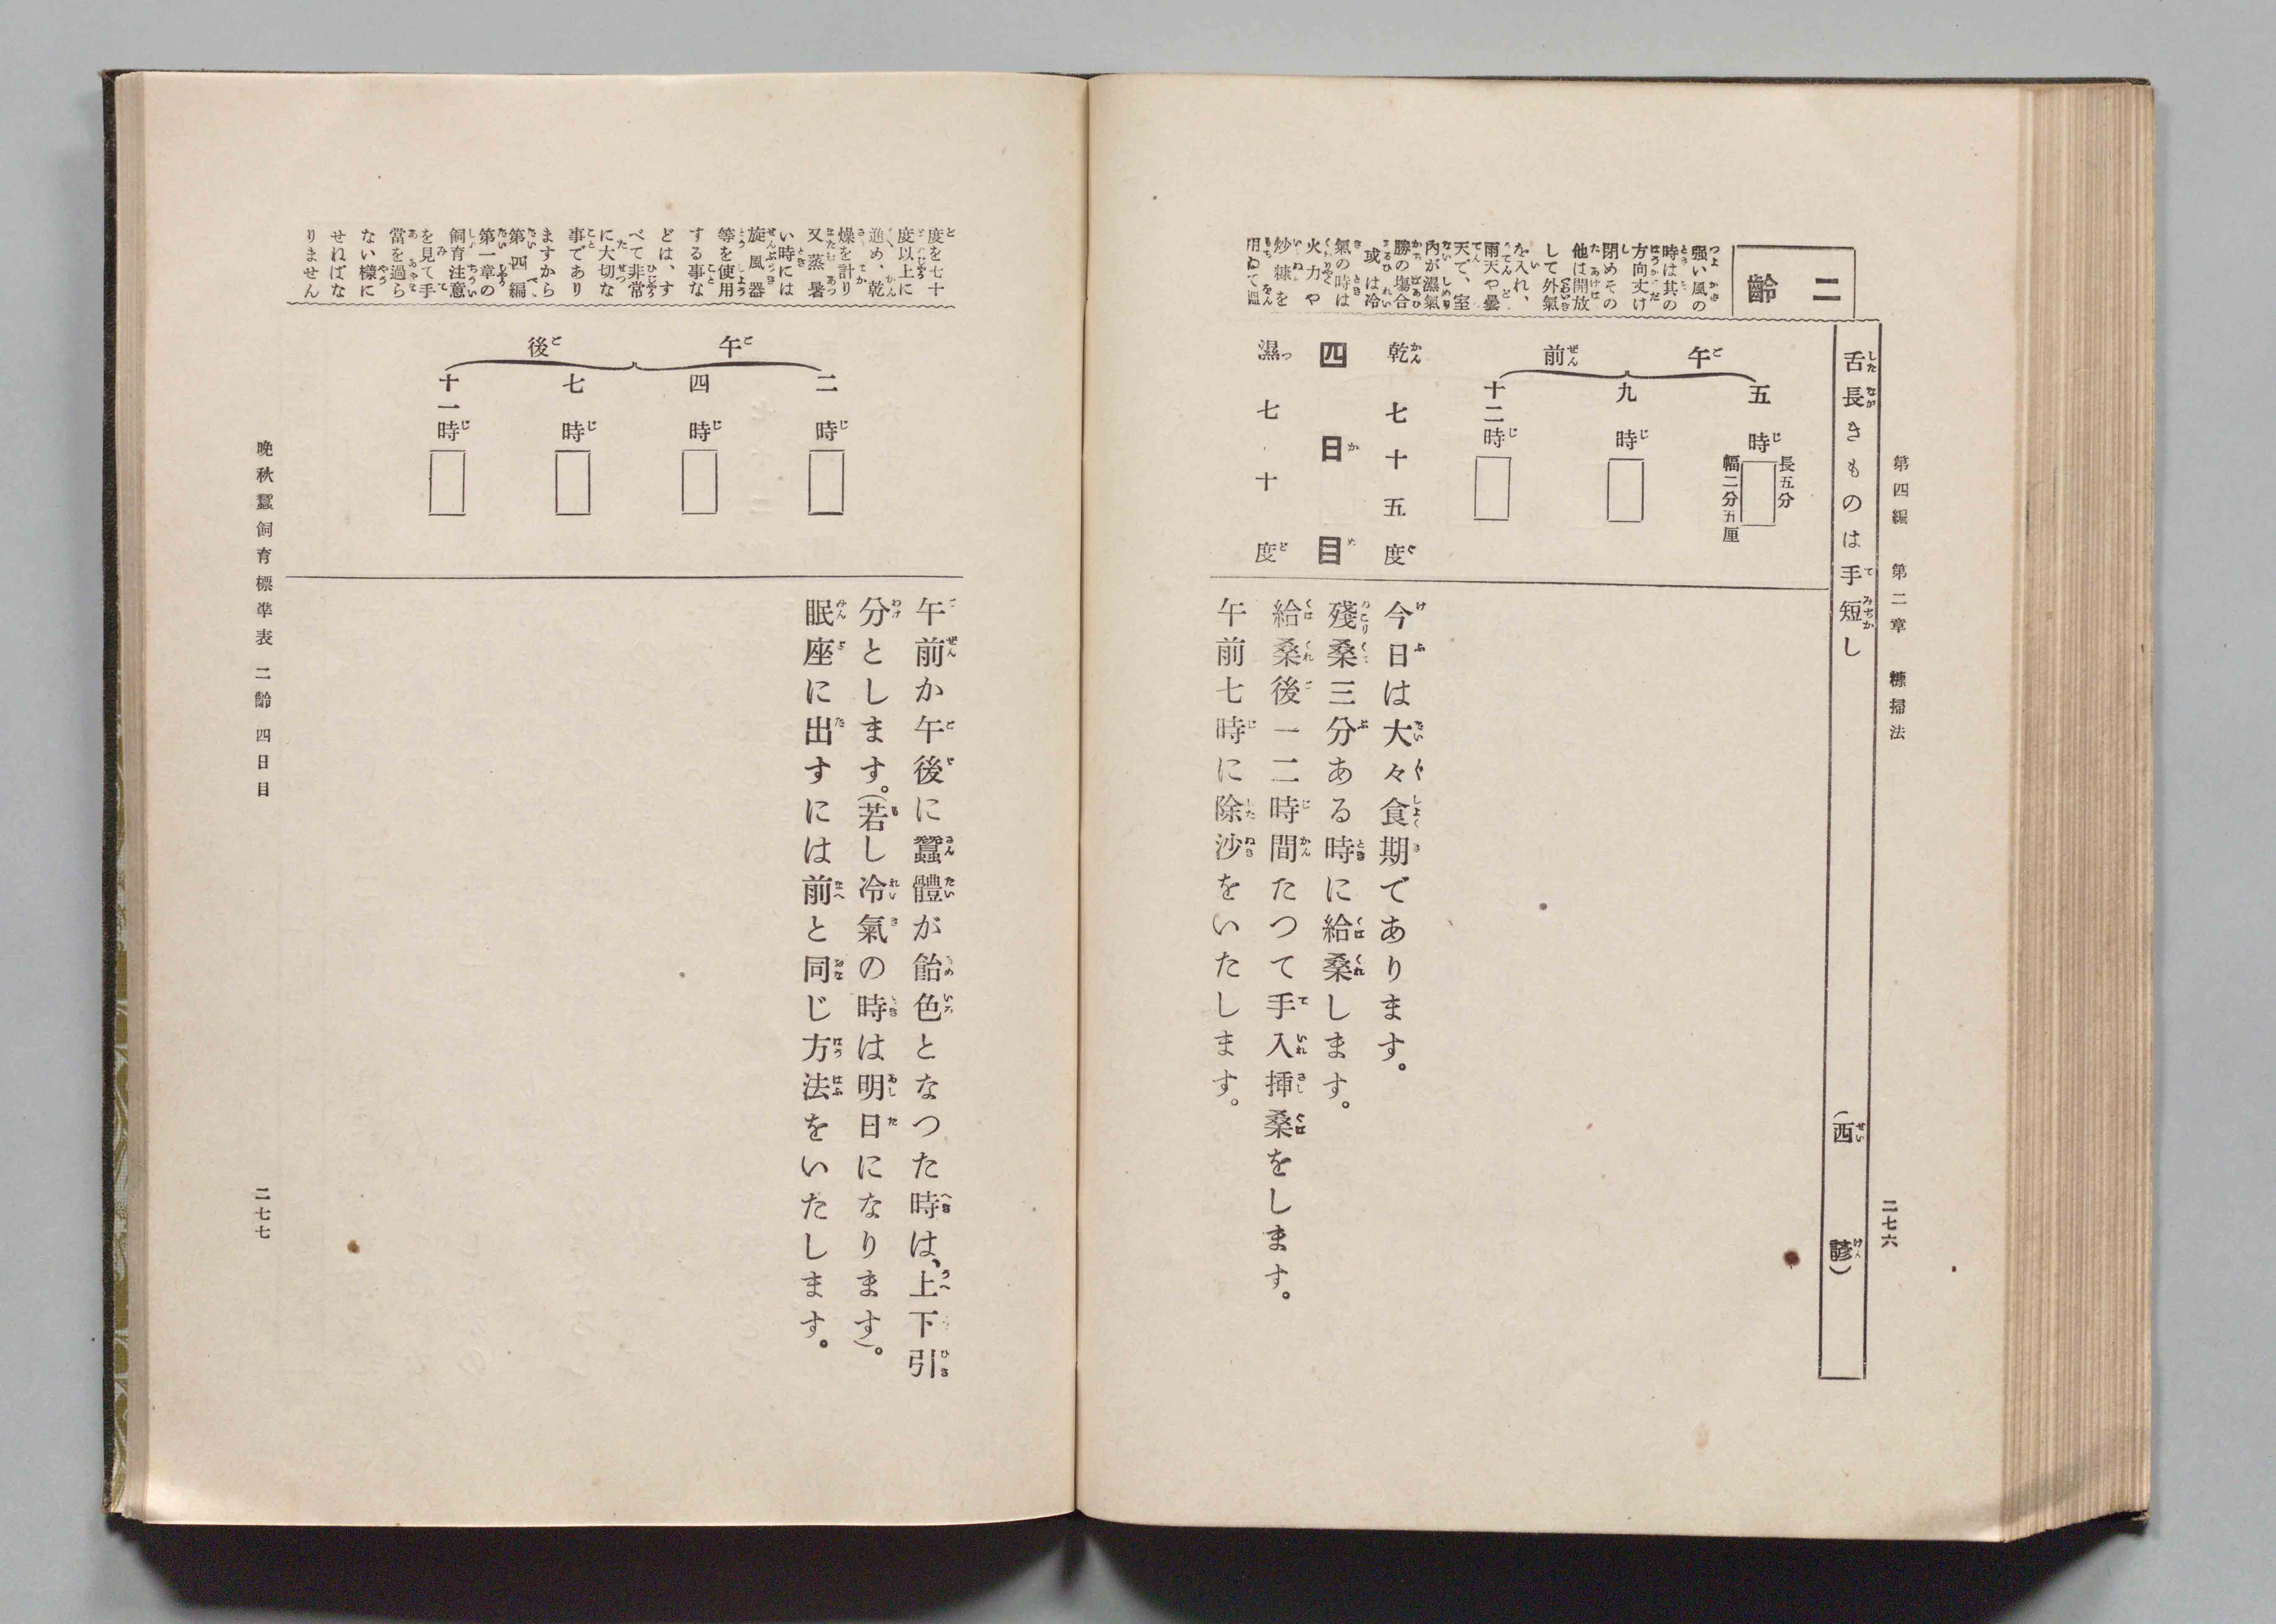 第四編 第二章 糠掃法
二七六
舌長きものは手短し (西諺)
二齡
强い風の
時は其の
方向丈け
閉めその
他は開放
して外氣
を入れ、
雨天や曇
天で、室
內が濕氣
勝の場合
或は冷
氣の時は
火力や
炒糠を
用ゐて溫
午前
五時 長五分 幅二分五厘
九時
十二時
乾 七十五度
四日目
濕 七十度
今日は大々食期であります。
殘桑三分ある時に給桑します。
給桑後一二時間たつて手入挿桑をします。
午前七時に除沙をいたします。
度を七十
度以上に
進め、乾
燥を計り
又蒸暑
い時には
旋風器
等を使用
する事な
どは、す
べて非常
に大切な
事であり
ますから
第四編、
第一章の
飼育注意
を見て手
當を過ら
ない樣に
せればな
りません
午後
二時
四時
七時
十一時
午前か午後に蠶體が飴色となつた時は、上下引
分とします。(若し冷氣の時は明日になります)。
眠座に出すには前と同じ方法をいたします。
晩秋蠶飼育標準表 二齡 四日目
二七七